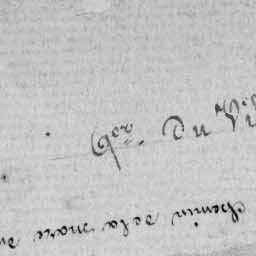 Qer. Du Vil
chemin de la mare